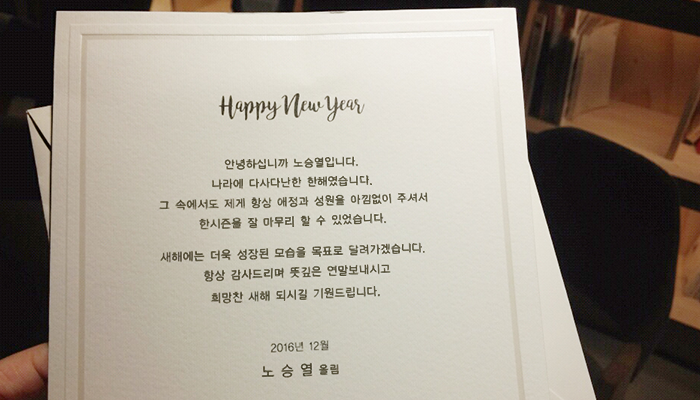 Happy New Year
안녕하십니까 노승열입니다.
나라에 다사다난한 한해였습니다.
그 속에서도 제게 항상 애정과 성원을 아낌없이 주셔서
한시즌을 잘 마무리 할 수 있었습니다.
새해에는 더욱 성장된 모습을 목표로 달려가겠습니다.
항상 감사드리며 뜻깊은 연말보내시고
희망찬 새해 되시길 기원드립니다.
2016년 12월
노 승 열 올림